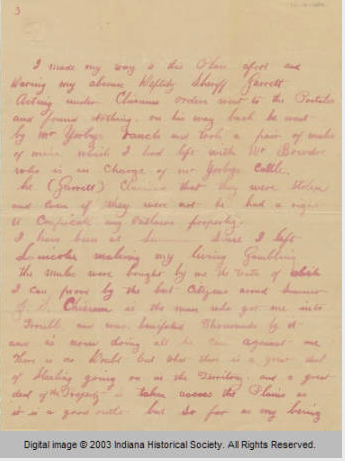 3
I made my way to this Place afoot and
During my absence Deputy Sheriff Garrett
Acting under Chisum's orders went to the Portales
and found Nothing. on his way back he went
by Mr Yerbys ranch and took a pair of mules
of mine which I had left with Mr Bowdre
who is in Charge of mr Yerbys Cattle.
he (Garrett) Claimed that they were stolen
and even if they were not he had a right
to Confiscate any Outlaws property.
I have been at Sumner Since I left
Lincoln making my living Gambling
the mules were bought by me the truth of which
I can prove by the best Citizens around Sumner
J. S. Chisum is the man who got me into
Trouble, and was benefited Thousands by it
and is now doing all he can against me
There is no Doubt but what there is a great deal
of Stealing going on in the Territory. and a great
deal of the Property is taken across the Plains as
it is a good outlet but so far as my being
Digital image © 2003 Indiana Historical Society. All Rights Reserved.